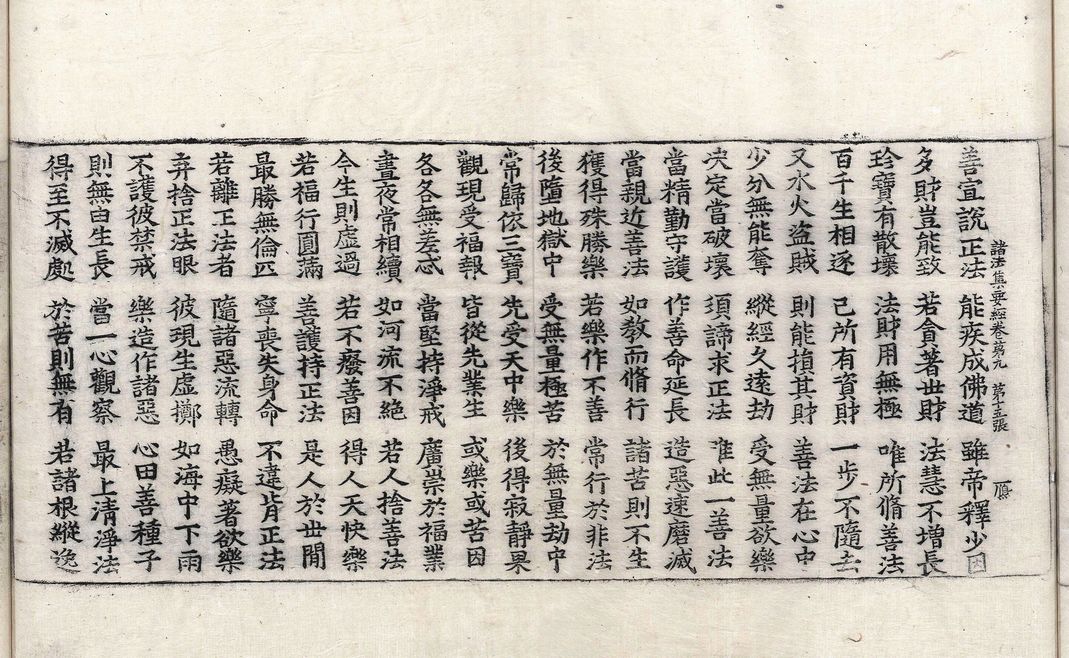 諸法集要經卷第九 第 張
善宣說正法 能疾成佛道 雖帝釋少因
多財豈能致 若貪著世財 法慧不增長
珍寶有散壞 法財用無極 唯所脩善法
百千生相逐 己所有資財 一步不隨去
又水火盜賊 則能損其財 善法在心中
少分無能奪 縱經久遠劫 受無量欲樂
決定當破壞 須諦求正法 唯此一善法
當精勤守護 作善命延長 造惡速磨滅
當親近善法 如教而脩行 諸苦則不生
獲得殊勝樂 若樂作不善 常行於非法
後墮地獄中 受無量極苦 於無量劫中
常歸依三寶 先受天中樂 後得寂靜果
觀現受福報 皆從先業生 或樂或苦因
各各無差忒 當堅持淨戒 廣崇於福業
晝夜常相續 如河流不絕 若人捨善法
今生則虛過 若不癈善因 得人天快樂
若福行圓滿 善護持正法 是人於世閒
最勝無倫匹 寧喪失身命 不違背正法
若離正法者 隨諸惡流轉 愚癡著欲樂
弃捨正法眼 彼現生虛擲 如海中下雨
不護彼禁戒 樂造作諸惡 心田善種子
則無由生長 當一心觀察 最上清淨法
得至不滅處 於苦則無有 若諸根縱逸